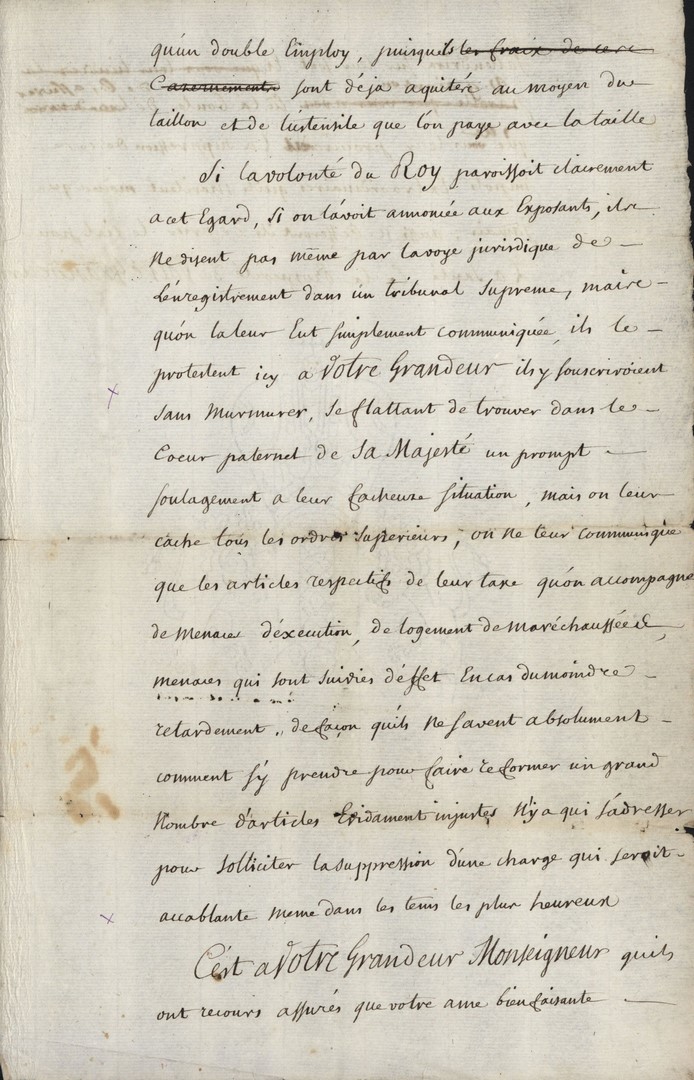 qu'un double Employ, puisqu'ils les fraix de cere
Casernements sont déja aquitéz au moyen du
taillon et de l'ustensile que l'on paye avec la taille
Si la volonté du Roy paroissoit clairement
a cet Egard, Si on l'avoit annoncée aux Exposants, ils
ne disent pas même par la voye jurisdique de
L'énregistrement dans un tribunal Supreme, mais
qu'on la leur Eut simplement communiquée, ils le
protestent icy a Votre Grandeur ils y souscriroient
sans murmurer, se flattant de trouver dans le
Coeur paternel de Sa Majesté un prompt
soulagement a leur facheuse situation, mais on leur
cache tous les ordres superieurs, on ne leur communique
que les articles respectifs de leur taxe qu'on accompagne
de menaces d'éxecution, de logement de maréchaussée &,
menaces qui sont suivies d'éffet En cas du moindre
retardement, de façon qu'ils ne savent absolument
comment s'y prendre pour faire reformer un grand
Nombre d'articles Evidament injustes N'y a qui s'adresser
pour solliciter la suppression d'une charge qui seroit
accablante meme dans les tems les plus heureux
C'est a Votre Grandeur Monseigneur qu'ils
ont recours assurés que votre ame bienfaisante